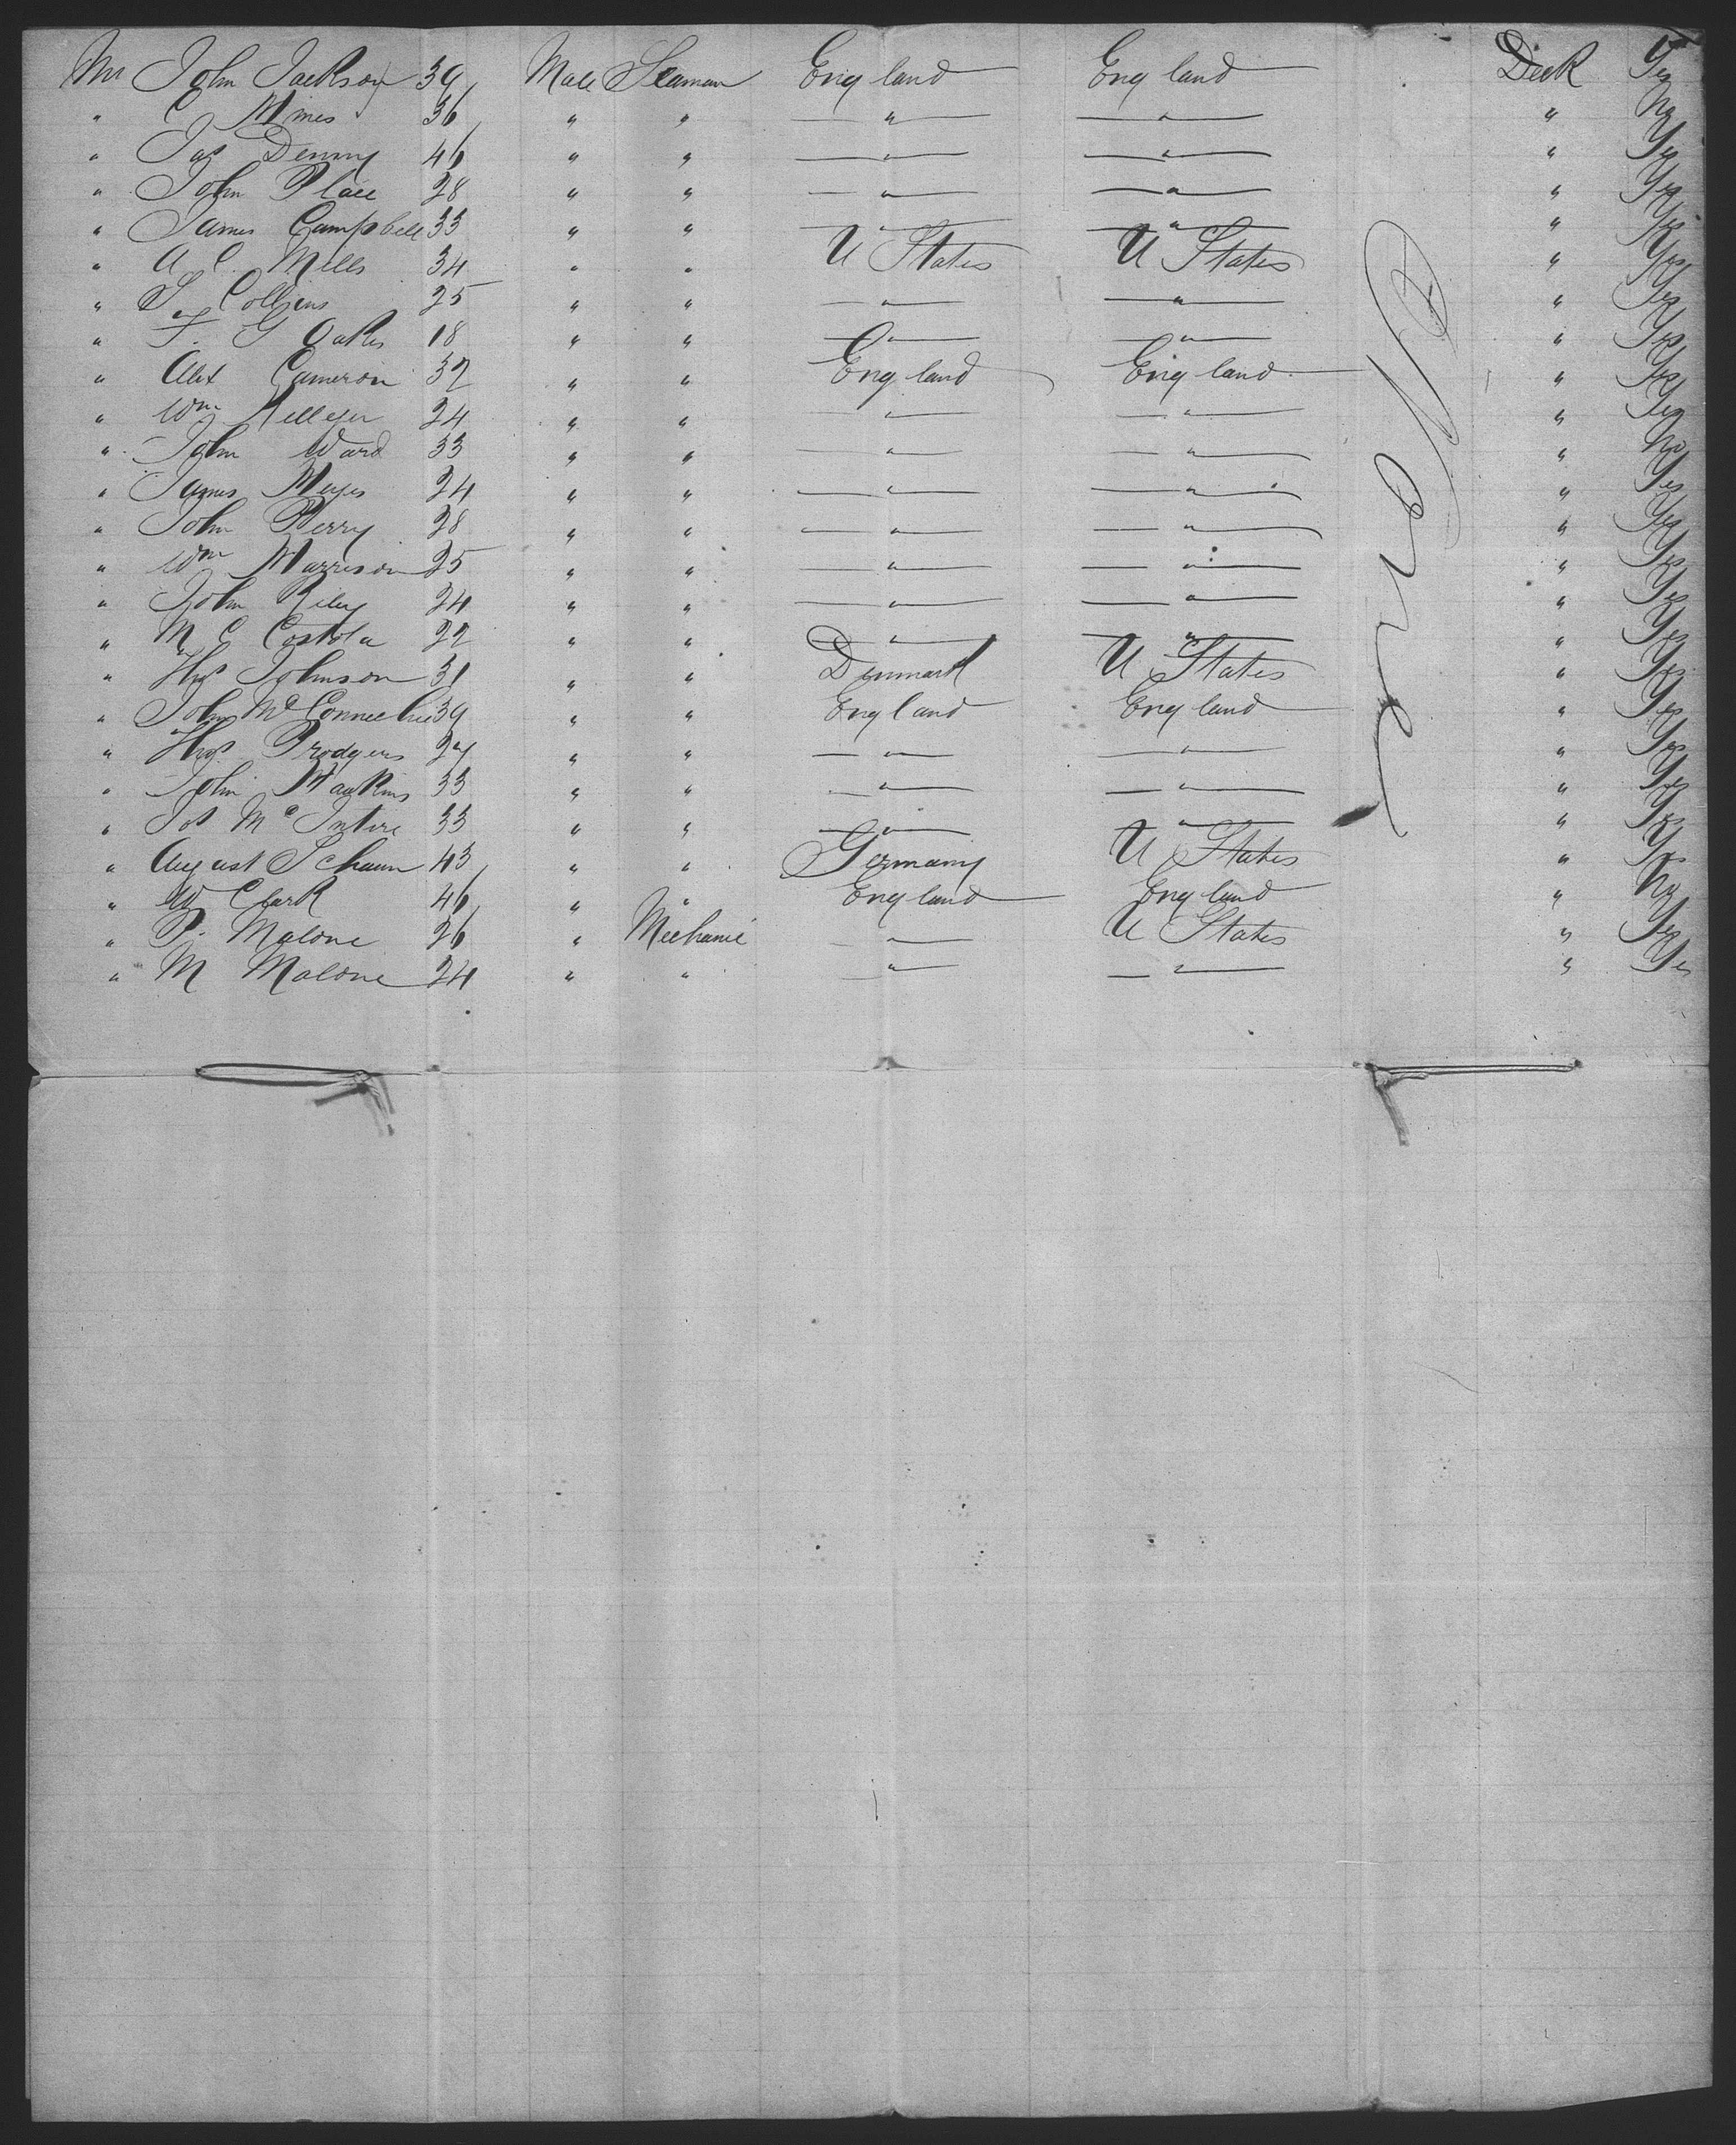 Mr John Jackson 39 Male Seaman England England Deck Yes
" C Mines 36 " " " " " No
" Jas Denny 46 " " " " " Yes
" John Place 28 " " " " " Yes
" James Campbell 33 " " " " " Yes
" A C. Mills 34 " " U States U States " Yes
" S Collins 25 " " " " " Yes
" F. G Oakes 18 " " " " " Yes
" Alex Cameron 32 " " England England " Yes
" Wm 24 " " " " " Yes
" John Ward 33 " " " " " No
" James Mayes 24 " " " " " Yes
" John Perry 28 " " " " " Yes
" Wm Marrison 25 " " " " " Yes
" John Riley 24 " " " " " Yes
" M C Costola 22 " " " " " Yes
" Thos Johnson 31 " " Denmark U States " Yes
" John McConnechie 39 " " England England " Yes
" Thos Prodgers 27 " " " " " Yes
" John Hawkins 33 " " " " " Yes
" Jos McIntire 33 " " " " " Yes
" August Schaum 43 " " Germany U States " Yes
" W Clark 46 " " England England " No
" P. Malone 26 " Mechanic " U States " Yes
" M Malone 24 " " " " " Yes